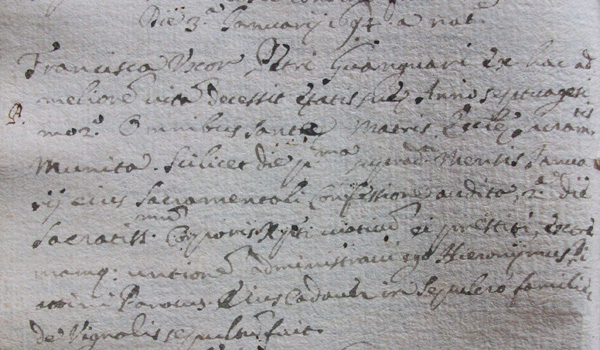 Die 3.ª Januarij 1694. a nat.
Francisca Uxor Petri Guanquari ex hac ad
meliorē vitā decessit Etatis sue Anno septuagesi
mo 2.º Omnibus Sanctę Matris Ecclę Sacramētis
munita. Scilicet die pʳⁱᵐᵃ Mensis Janua
rij eius Sacramentali Confessione audita, 2.ª die
Sacratiss.ᵐᵘᵐ Corporis Xpti viaticū ei prestiti, extre
mamq. unctionē administravi ego Hieronijmus
Parocus. Eius Cadaver in Sepulcro familię
de Vignolis sepultum fuit.